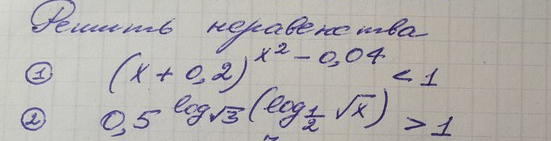 Решить неравенства
① (x + 0,2)^{x² - 0,04} < 1
② 0,5^{log_{√3}(log_{1/2} √x)} > 1